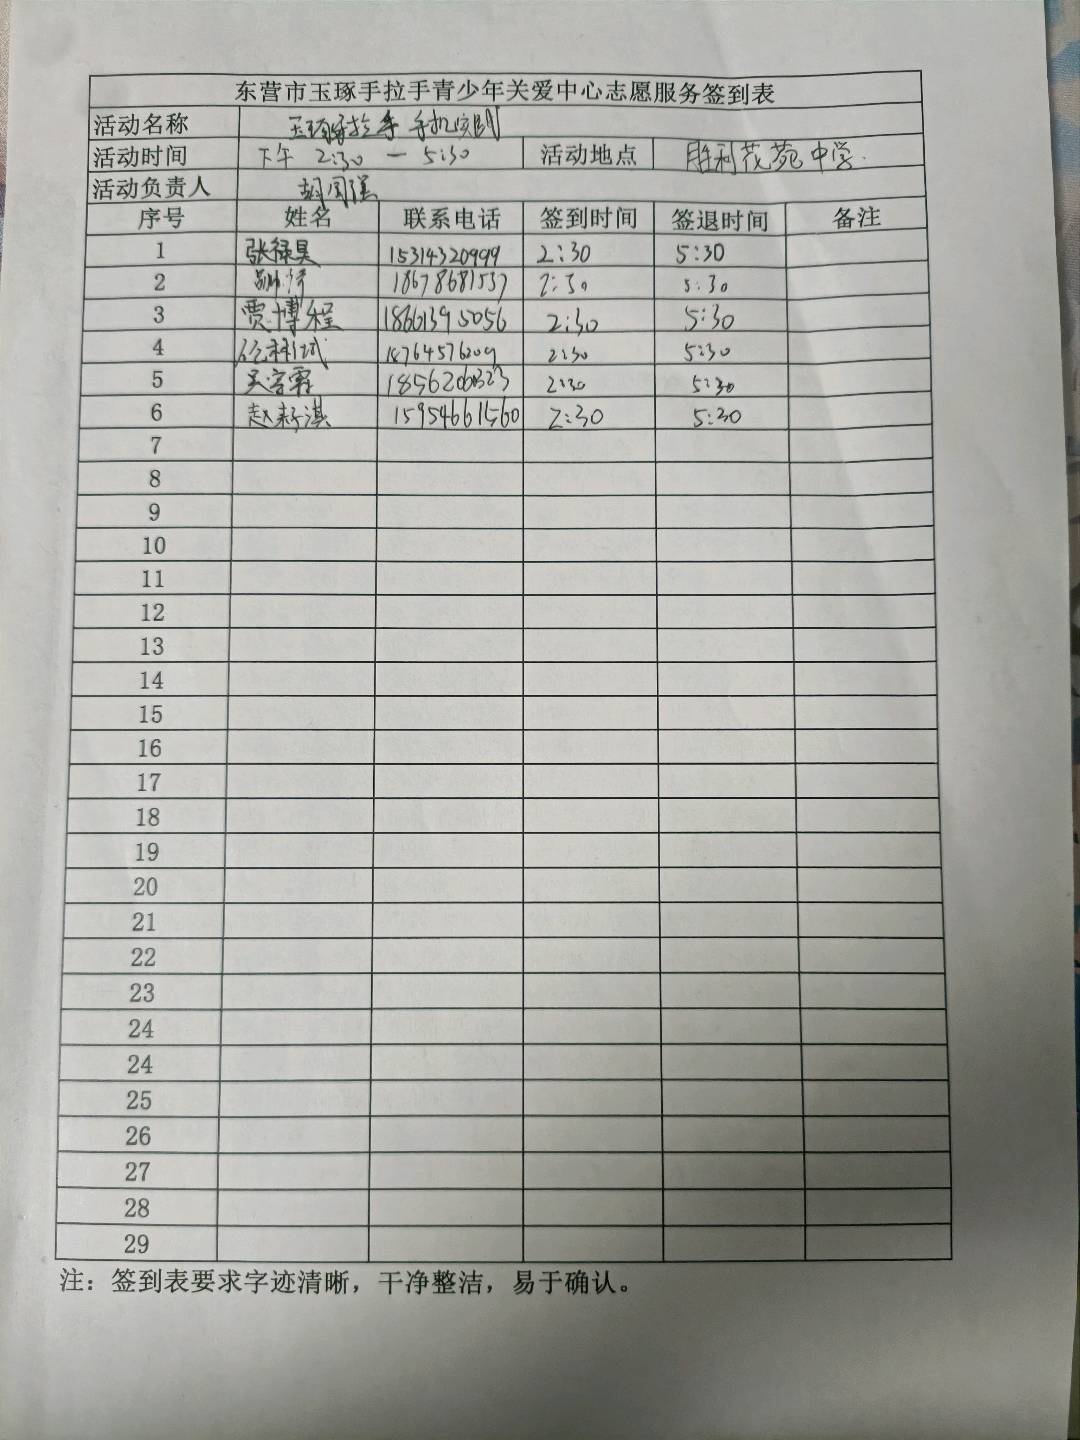 东营市玉琢手拉手青少年关爱中心志愿服务签到表
活动名称 玉琢手拉手 手机
活动时间 下午 2:30 — 5:30 活动地点 胜利茂苑中学.
活动负责人 胡国强
序号 姓名 联系电话 签到时间 签退时间 备注
1 张禄昊 15314320999 2:30 5:30
2 18678681537 2:30 5:30
3 贾博程 18661395056 2:30 5:30
4 18764576209 2:30 5:30
5 2:30 5:30
6 赵新淇 15954661560 2:30 5:30
7
8
9
10
11
12
13
14
15
16
17
18
19
20
21
22
23
24
24
25
26
27
28
29
注：签到表要求字迹清晰，干净整洁，易于确认。